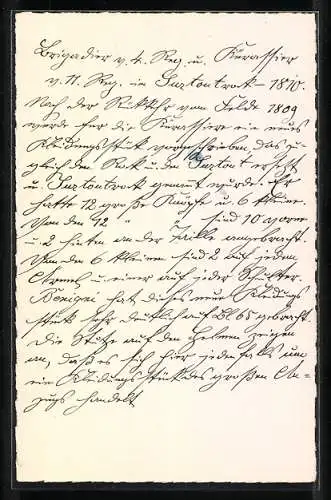 Brigadier v. 4. Reg. u. Kürassier
v. 11. Reg. in Surtoutrock – 1810.
Nach der Rückkehr vom Felde 1809
wurde für die Kürassiere ein neues
Kleidungsstück vorgeschrieben, das zu-
gleich den Rock u. den Surtout ersetzt
u. Surtoutrock genannt wurde. Er
hatte 12 große Knöpfe u. 6 kleine.
Von den 12 " sind 10 vorne
u. 2 hinten an der Taille angebracht.
Von den 6 kleinen sind 2 auf jedem
Ärmel u. einer auf jeder Schulter.
Benigni hat dieses neue Kleidungs
stück sehr deutlich auf Bl. 65 gebracht.
Die Stütze auf den Helmen zeigen
an, daß es sich hier jedenfalls um
ein Kleidungsstück des großen An-
zugs handelt